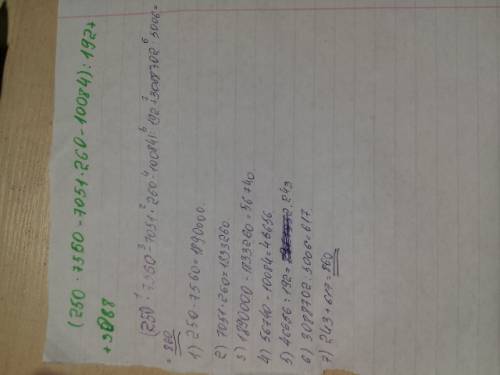 (250·7560-7051·260-10084):192+
+3088
(250·7560-7051·260-10084):192+3088702:5006=
=860
1) 250·7560=1890000.
2) 7051·260=1833260.
3) 1890000-1833260=56740.
4) 56740-10084=46656
5) 46656:192=243
6) 3088702:5006=617.
7) 243+617=860